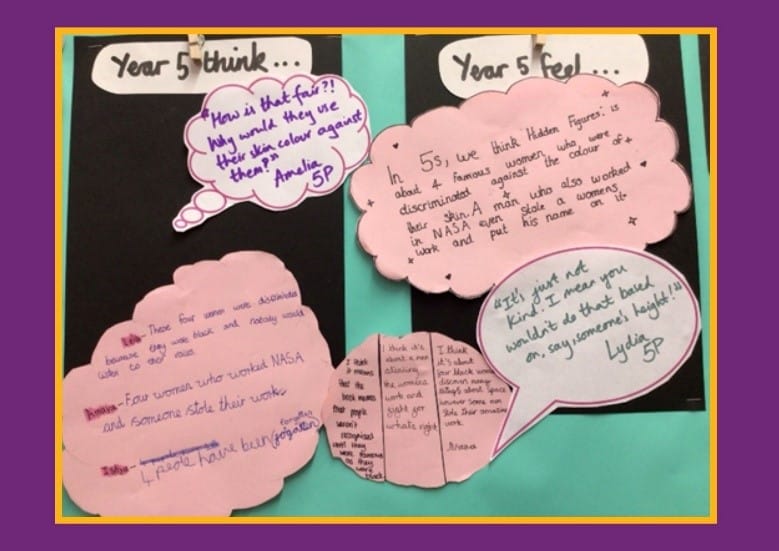 Year 5 think...
"How is that fair?!
Why would they use
their skin colour against
them?"
Amelia
5P
Year 5 feel...
In 5s, we think 'Hidden Figures' is
about 4 famous women who were
discriminated against the colour of
their skin. A man who also worked
in NASA even stole a womens
work and put his name on it.
"It's just not
kind. I mean you
wouldn't do that based
on, say, someone's height!"
Lydia
5P
These four women were
because they were black and nobody would
to their
Amara - Four women who worked NASA
and someone stole their work
4 have been forgotten
I think
it means
that the
book means
that people
weren't
recognised
until they
were famous
as they
were black
I think it's
about a man
stealing
the womens
work and
fight for
what's right
I think
it's about
four black
discover many
things about space
however some men
stole their amazing
work.